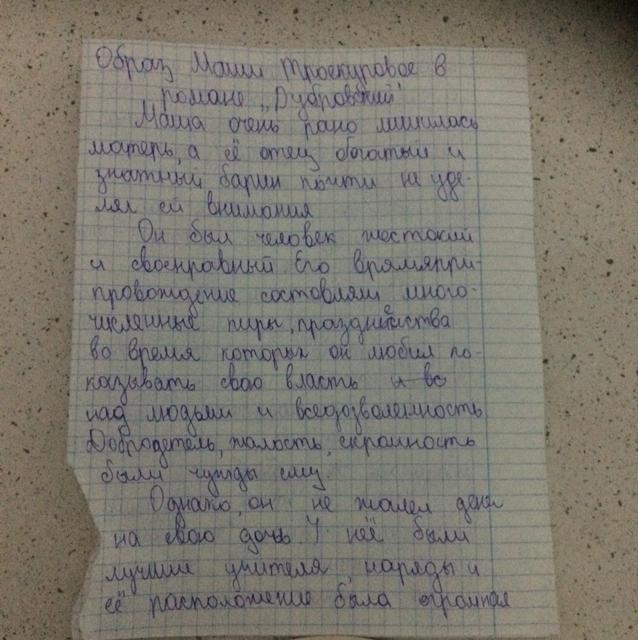 Образ Маши Троекуровое в
романе „Дубровский"
Маша очень рано лишилась
матерь, а её отец богатый и
знатный барин почти не уде-
лял ей внимания
Он был человек жестокий
и своенравный Его врямярри-
провождение состовляли много-
численные пиры, празднества
во время которых он любил по-
казывать свою власть и во
над людьми и вседозволенность
Добродетель, жалость, скромность
были чужды ему.
Однако, он не жалел денег
на свою дочь. У неё были
лучшие учителя, наряды и
её расположение была огромная